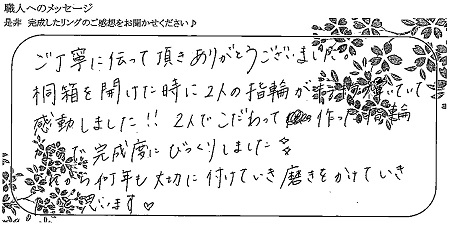 職人へのメッセージ
是非 完成したリングのご感想をお聞かせください♪
ご丁寧に伝って頂きありがとうございました。
桐箱を開けた時に2人の指輪が いて
感動しました!! 2人でこだわって 作った 輪
で 完成度にびっくりしました
から何年も大切に付けていき磨きをかけていき
思います♡